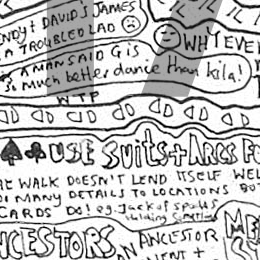 NDY + DAVID'S JAMES
A TROUBLED LAD
WHY EVE
A MAN SAID G is
much better dance than kila!
WTP
USE SUITS + ARCS FO
WALK DOESN'T LEND ITSELF WEL
O MANY DETAILS TO LOCATIONS BUT
CARDS DO! eg. Jack of spades
Holding Something
NCESTORS
AN ANCESTOR
MENT +
ME